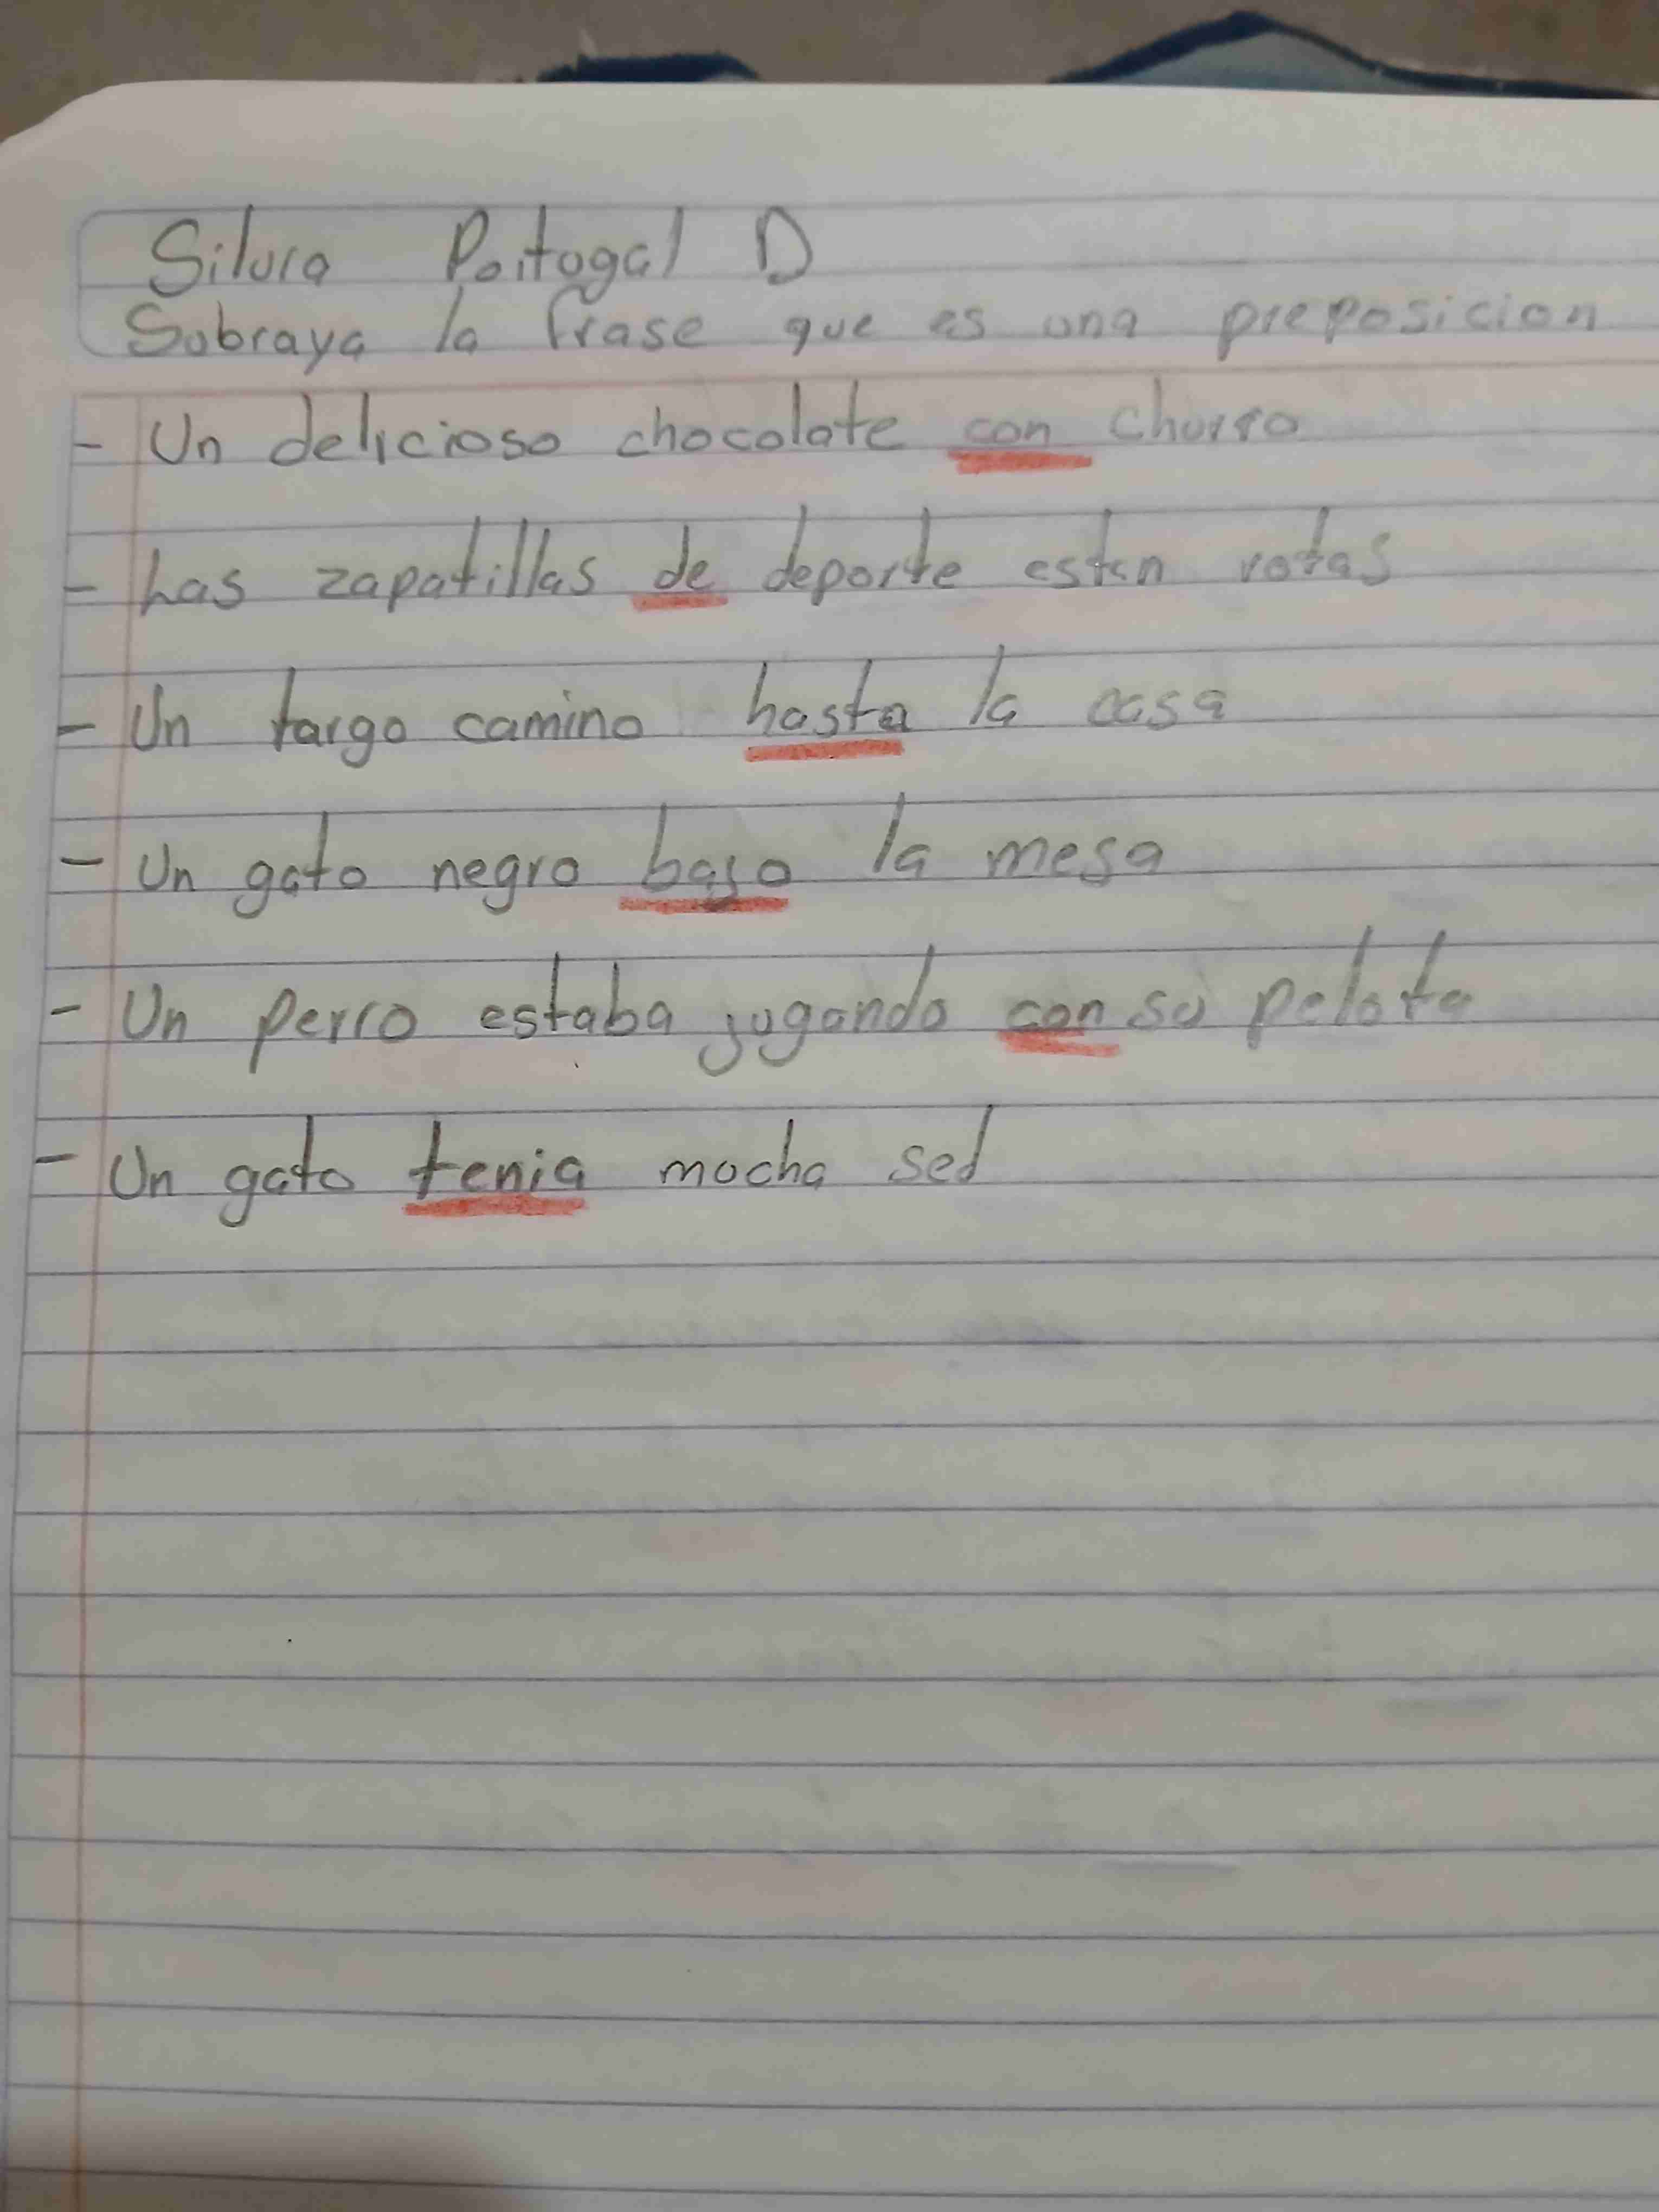 Silvia Portugal D
Subraya la frase que es una preposicion
- Un delicioso chocolate con churro
- Las zapatillas de deporte estan rotas
- Un targo camino hasta la casa
- Un gato negro bajo la mesa
- Un perro estaba jugando con su pelota
- Un gato tenia mucha sed